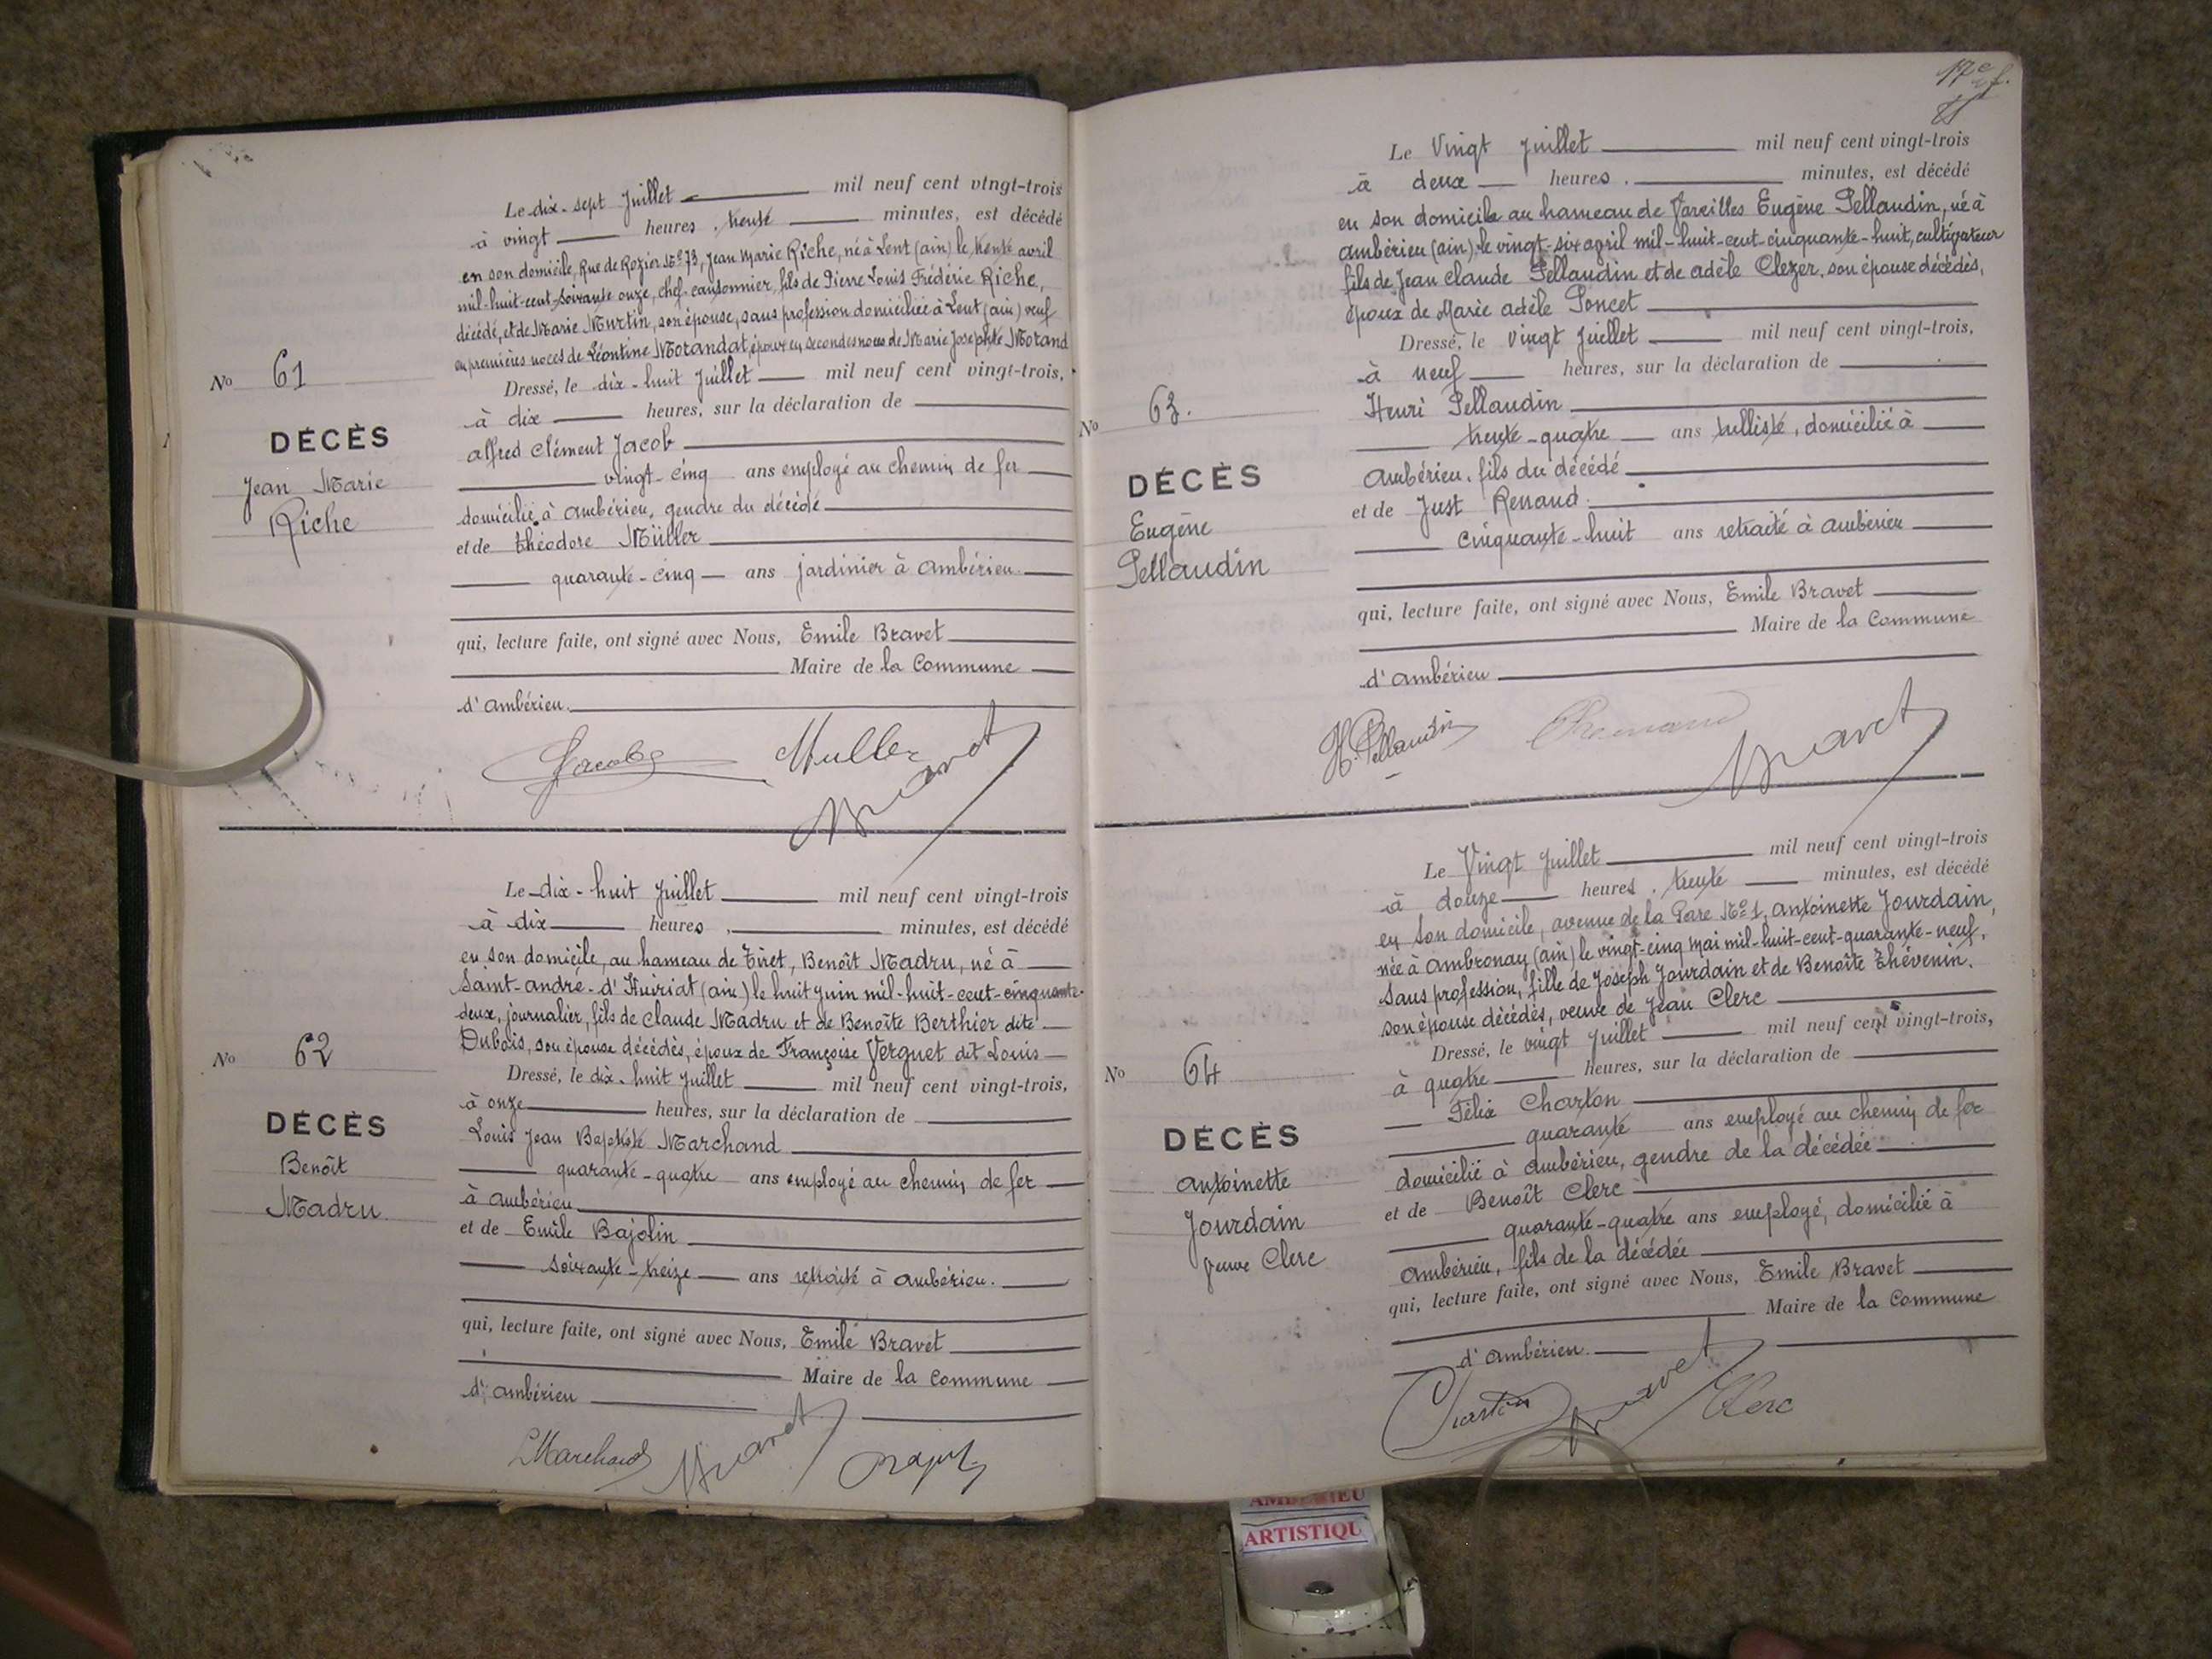 Le dix-sept Juillet mil neuf cent vingt-trois
à vingt heures, trente minutes, est décédé
en son domicile, Rue de Rozier No 73, Jean Marie Riche, né à Lent (ain) le trente avril
mil-huit-cent-soixante onze, chef-cantonnier, fils de Pierre Louis Frédéric Riche,
décédé, et de Marie Murtin, son épouse, sans profession domiciliée à Lent (ain) veuf
en premières noces de Léontine Morandat, époux en secondes noces de Marie Josephte Morand
No 61
Dressé, le dix-huit Juillet mil neuf cent vingt-trois,
à dix heures, sur la déclaration de
DÉCÈS
alfred Clément Jacob
Jean Marie
vingt-cinq ans employé au chemin de fer
Riche
domicilié à ambérieu, gendre du décédé
et de théodore Müller
quarante-cinq ans jardinier à ambérieu.
qui, lecture faite, ont signé avec Nous, Emile Bravet
Maire de la Commune
d'ambérieu.
Jacob Muller
Bravet
Le dix-huit Juillet mil neuf cent vingt-trois
à dix heures, minutes, est décédé
en son domicile, au hameau de Tiret, Benoît Madru, né à
Saint-andré-d'Huiriat (ain) le huit juin mil-huit-cent-cinquante-
deux, journalier, fils de Claude Madru et de Benoîte Berthier dite
Dubois, son épouse décédés, époux de Françoise Verguet dit Louis
No 62
Dressé, le dix-huit Juillet mil neuf cent vingt-trois,
à onze heures, sur la déclaration de
DÉCÈS
Louis Jean Baptiste Marchand
Benoît
quarante-quatre ans employé au chemin de fer
Madru
à ambérieu
et de Emile Bajolin
soixante-treize ans retraité à ambérieu.
qui, lecture faite, ont signé avec Nous, Emile Bravet
Maire de la Commune
d'ambérieu
LMarchand Bravet
17e f.
Le Vingt Juillet mil neuf cent vingt-trois
à deux heures, minutes, est décédé
en son domicile au hameau de Vareilles Eugène Pellaudin, né à
ambérieu (ain) le vingt-six april mil-huit-cent-cinquante-huit, cultivateur
fils de Jean Claude Pellaudin et de adèle Clezer, son épouse décédés,
époux de Marie adèle Poncet
Dressé, le Vingt Juillet mil neuf cent vingt-trois,
à neuf heures, sur la déclaration de
No 63.
Henri Pellaudin
trente-quatre ans tulliste, domicilié à
DÉCÈS
ambérieu, fils du décédé
Eugène
et de Just Renaud
Pellaudin
cinquante-huit ans retraité à ambérieu
qui, lecture faite, ont signé avec Nous, Emile Bravet
Maire de la Commune
d'ambérieu
H. Pellaudin Renaud
Bravet
Le Vingt Juillet mil neuf cent vingt-trois
à douze heures, trente minutes, est décédé
en son domicile, avenue de la Gare No 1, antoinette Jourdain,
née à Ambronay (ain) le vingt-cinq mai mil-huit-cent-quarante-neuf,
sans profession, fille de Joseph Jourdain et de Benoîte Thévenin,
son épouse décédés, veuve de Jean Clerc
Dressé, le vingt Juillet mil neuf cent vingt-trois,
No 64
à quatre heures, sur la déclaration de
Félix Charton
DÉCÈS
quarante ans employé au chemin de fer
antoinette
domicilié à ambérieu, gendre de la décédée
Jourdain
et de Benoît Clerc
veuve Clerc
quarante-quatre ans employé, domicilié à
ambérieu, fils de la décédée
qui, lecture faite, ont signé avec Nous, Emile Bravet
Maire de la Commune
d'ambérieu.
Charton Bravet Clerc
AMBERIEU
ARTISTIQU